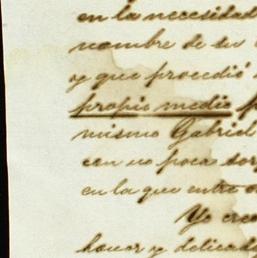 en la necesidad
nombre de su
y que procedió
propio medio
mismo Gabriel
con no poca sor
en la que entre
Yo cre
honor y delicade